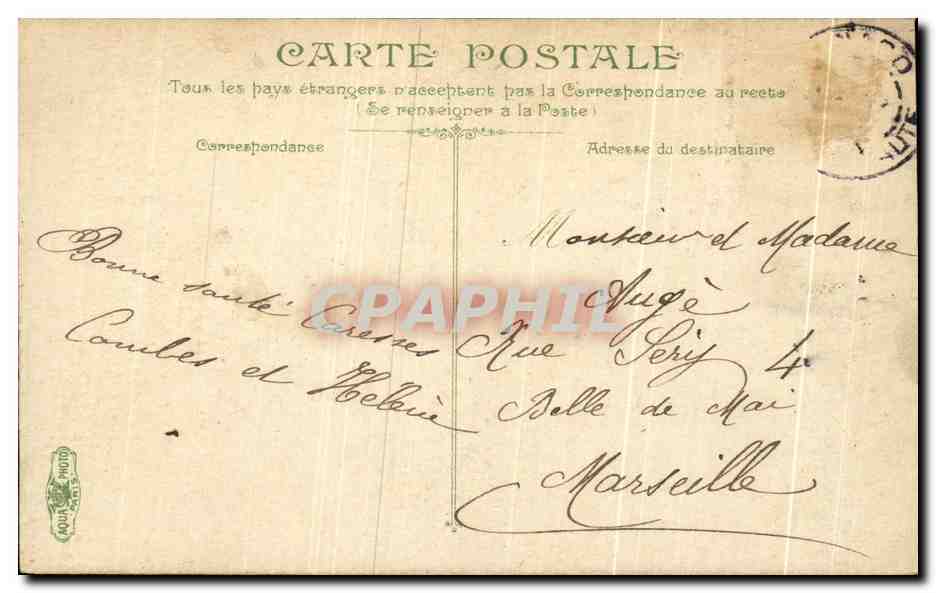 CARTE POSTALE
Tous les pays étrangers n'acceptent pas la Correspondance au recto
(Se renseigner à la Poste)
Correspondance
Adresse du destinataire
Bonne santé Caresses
Combes et Hélène
Monsieur et Madame
Augè
Rue Séry 4
Belle de Mai
Marseille
CPAPHIL
AQUA PHOTO
PARIS